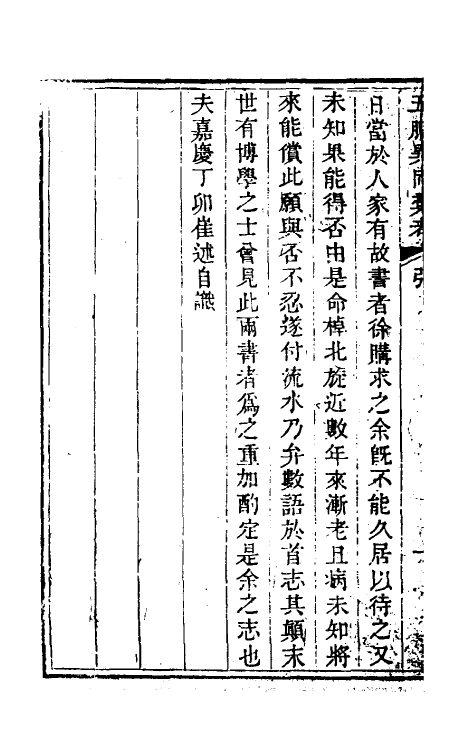 五服異同彙考
日當於人家有故書者徐購求之余旣不能久居以待之又
未知果能得否由是命棹北旋近數年來漸老且病未知將
來能償此願與否不忍遂付流水乃弁數語於首志其顛末
世有博學之士曾見此兩書者爲之重加酌定是余之志也
夫嘉慶丁卯崔述自識